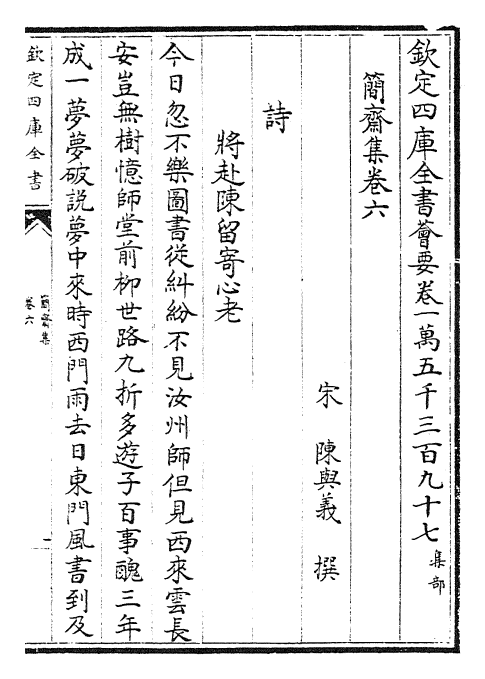 欽定四庫全書薈要卷一萬五千三百九十七 集部
簡齋集卷六
宋 陳與義 撰
詩
將赴陳留寄心老
今日忽不樂圖書從糾紛不見汝州師但見西來雲長
安豈無樹憶師堂前柳世路九折多遊子百事醜三年
成一夢夢破說夢中來時西門雨去日東門風書到及
欽定四庫全書
簡齋集
卷六
一